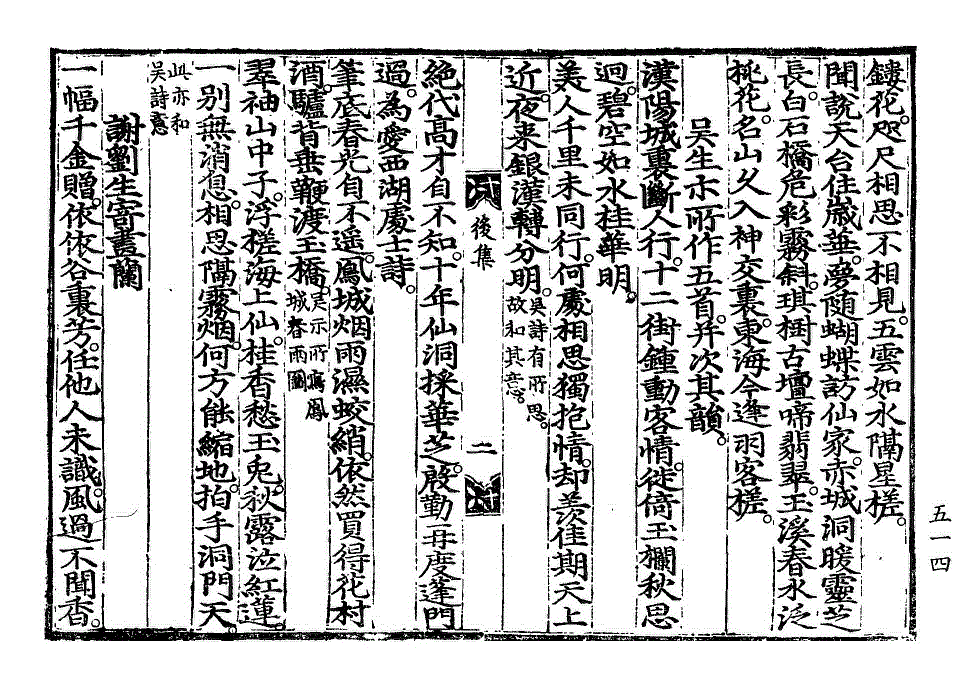 鏤花。咫尺相思不相見。五雲如水隔星槎。
聞說天台住歲華。夢随蝴蝶訪仙家。赤城洞暖靈芝
長。白石橋危彩霧斜。琪樹古壇啼翡翠。玉溪春水泛
桃花。名山久入神交裏。東海今逢羽客槎。
吳生示所作五首。并次其韻。
漢陽城裏斷人行。十二街鍾動客情。徙倚玉欄秋思
迥。碧空如水桂華明。
美人千里未同行。何處相思獨抱情。却羨佳期天上
近。夜来銀漢轉分明。吳詩有所思。故和其意。
後集
二
絶代高才自不知。十年仙洞採華芝。殷勤再度蓬門
過。為愛西湖處士詩。
筆底春光自不遥。鳳城烟雨濕蛟綃。依然買得花村
酒。驢背垂鞭渡玉橋。吳示所寫鳳城春雨圖
翠袖山中子。浮槎海上仙。桂香愁玉兎。秋露泣紅蓮。
一别無消息。相思隔霧烟。何方能縮地。拍手洞門天。
此亦和吳詩意
謝劉生寄畫蘭
一幅千金贈。依依谷裏芳。任他人未識。風過不聞香。
五一四